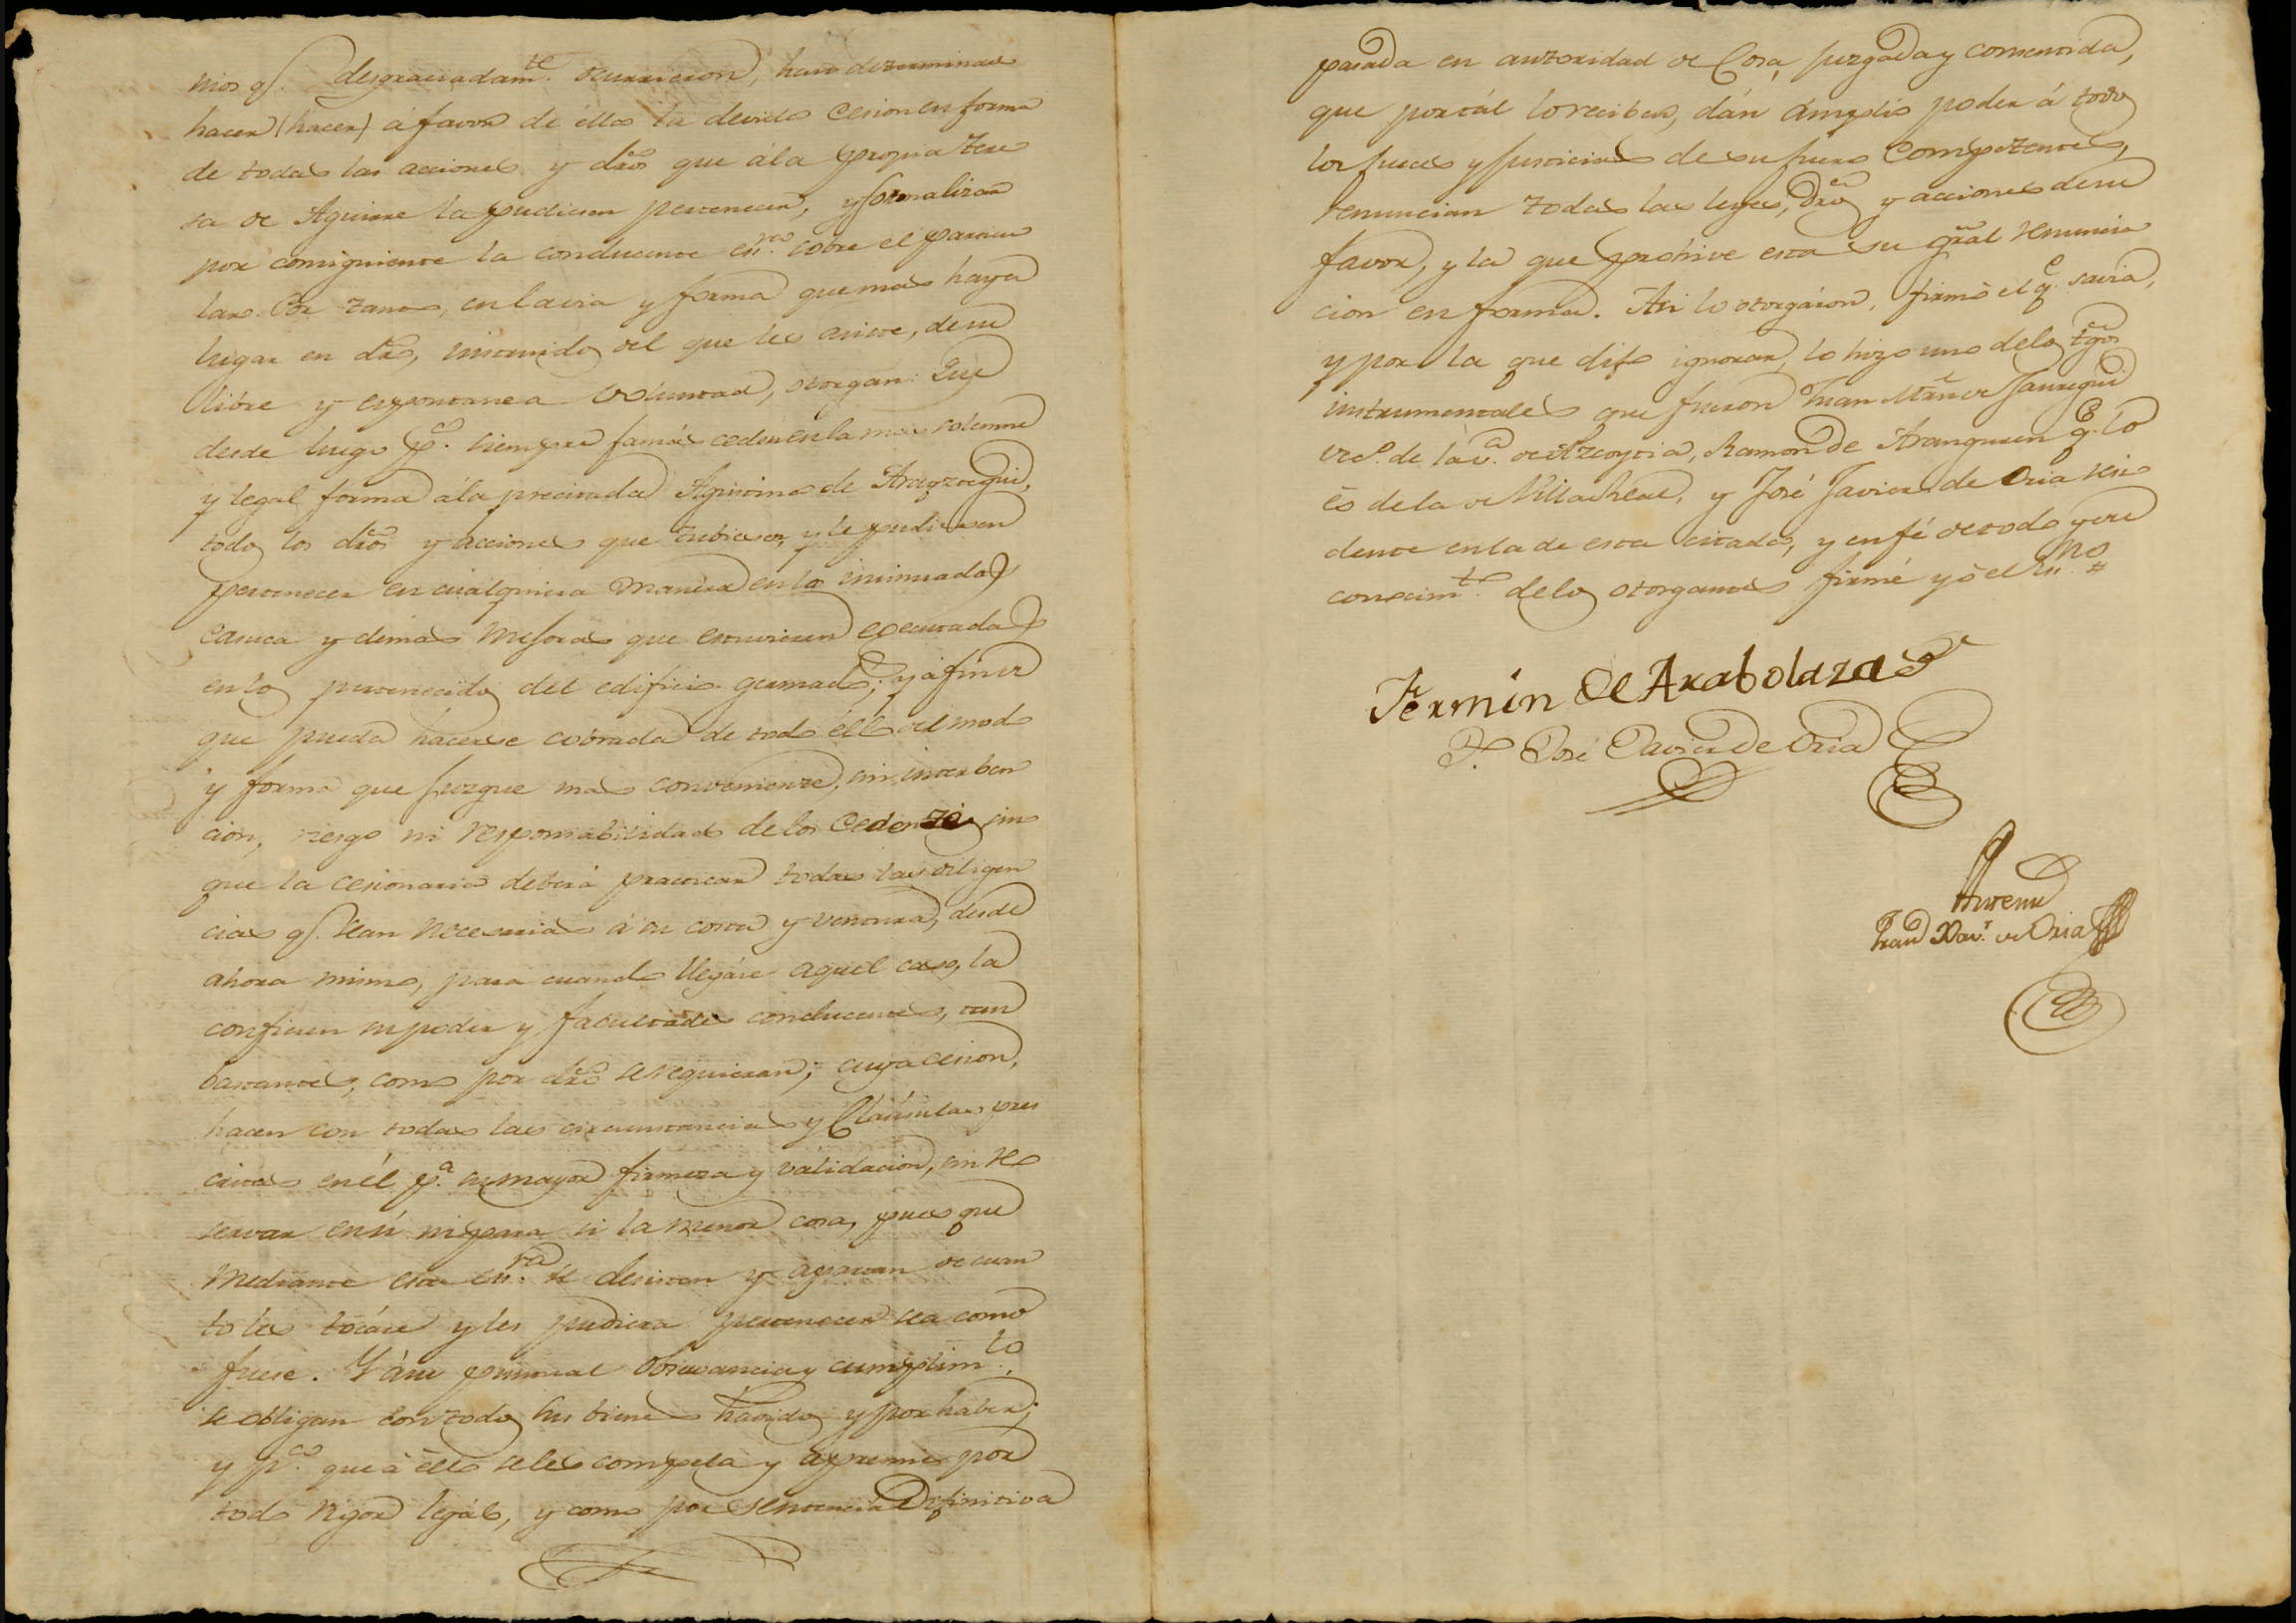 nios q.e desgraciadam.te ocurrieron, han determinado
hacer (hacer) á favor de élla la devida Cesion en forma
de todas las acciones y dros que ála propia Tere
sa de Aguirre la pudieran pertenecer, y formalizar
por consiguiente la conducente es.ra sobre el particu
lar. Por tanto, en la via y forma que mas haya
lugar en dro, instruidos del que les asiste, de su
libre y espontanea voluntad, otorgan: Que
desde luego p.a siempre jamás ceden en la mas solemne
y legal forma ála precitada Agustina de Arayztegui,
todos los dros y acciones que tubiesen, y le pudiesen
pertenecer en cualquiera manera en la insinuada
Casuca y demas mejoras que estuvieren executadas
en los pertenecidos del edificio quemado; y á fin de
que pueda hacerse cobrada de todo éllo del modo
y forma que juzgue mas conveniente, sin interben
cion, riesgo ni responsabilidad de los Cedentes, sin
que la cesionaria deberá practicar todas las diligen
cias q.e sean necesarias á su costa y ventura, desde
ahora mismo, para cuando llegáre aquel caso, la
confieren su poder y facultades conducentes, tan
bastantes, como por dro se requieran; cuya cesion,
hacen con todas las circunstancias y Cláusulas pres
critas en él p.a su mayor firmeza y validacion, sin re
servar en sí ni para si la menor cosa, pues que
mediante esta es.ra se desisten y apartan de cuan
to les tocáse y les pudiera pertenecer sea como
fuese. Y á su puntual observancia y cumplim.to,
se obligan con todos sus bienes havidos y por haber;
y p.a que á éllo se les compela y apremie por
todo rigor legál, y como por sentencia Difinitiva
pasada en autoridad de Cosa juzgada y consentida,
que por tál lo reciben, dán ámplio poder á todos
los Jueces y Justicias de su fuero Competentes,
renuncian todas las leyes, dros y acciones de su
favor, y la que prohive esta su gral renuncia
cion en forma. Asi lo otorgáron, firmó el q.e savia,
y por la que dijo ignorar, lo hizo uno de los tgos
instrumentales que fueron Juan Mn de Jauregui
vec.o de la v.a de Azcoytia, Ramon de Aranguren q.e lo
és de la de Villarreal, y José Javier de Oria resi
dente en la de esta citada, y en fé de todo y de
conocim.to de los otorgantes firmé yo el es.no #
Fermin de Arabolaza
T.o José Javier de Oria
Antemi
Fran.co Xav.r de Oria